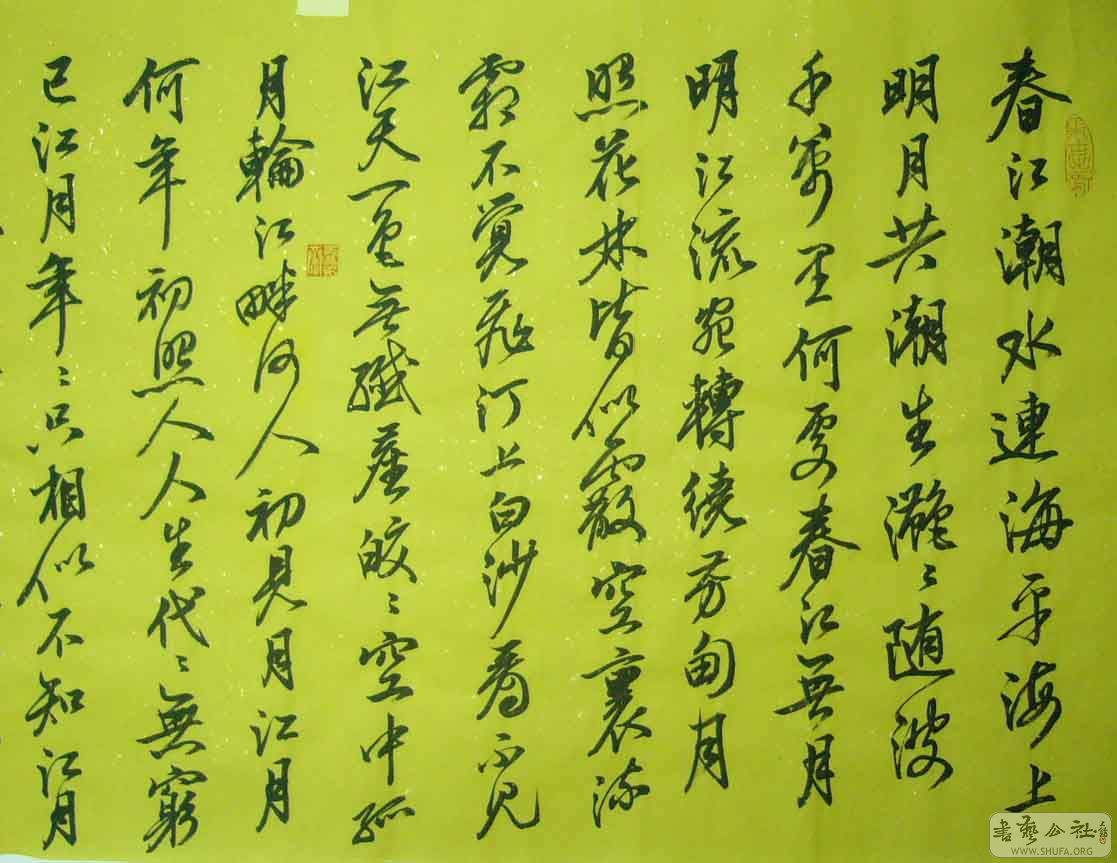 春江潮水連海平海上
明月共潮生灧〻随波
千萬里何處春江無月
明江流宛轉繞芳甸月
照花林皆似霰空裏流
霜不覺飛汀上白沙看不見
江天一色無纖塵皎〻空中孤
月輪江畔何人初見月江月
何年初照人人生代〻無窮
已江月年〻只相似不知江月
書藝公社
WWW.SHUFA.ORG